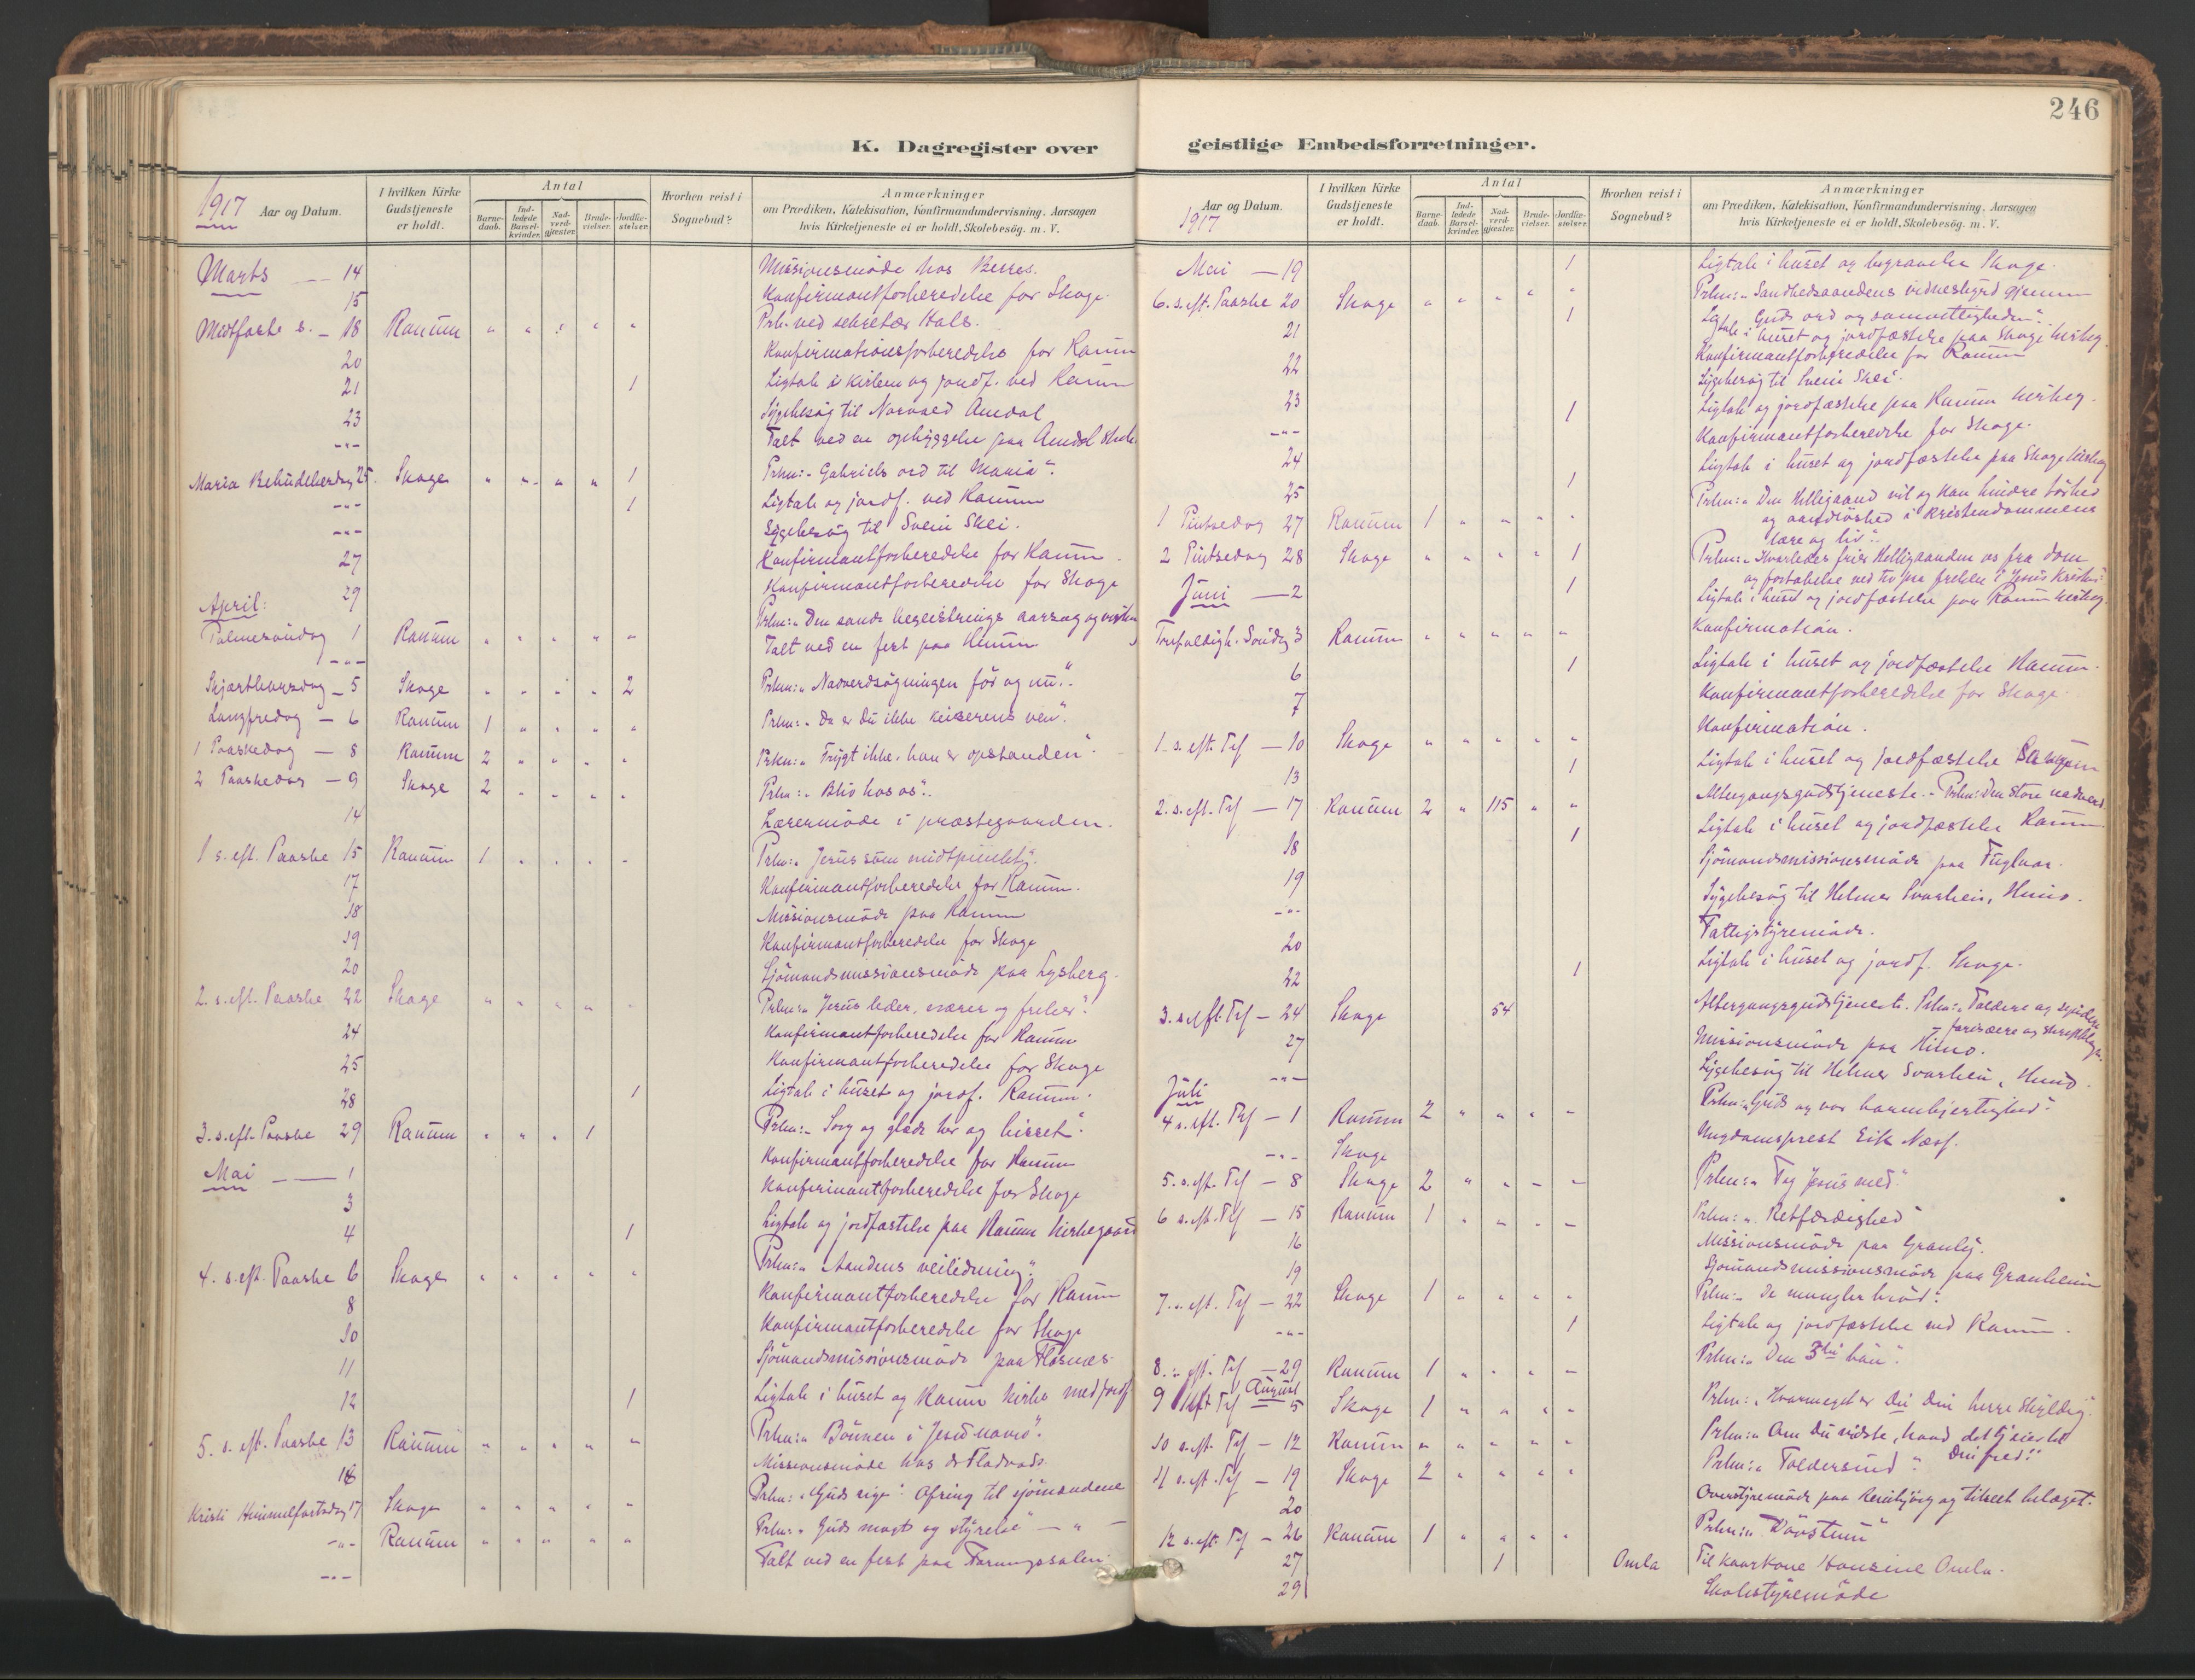 246
K. Dagregister over geistlige Embedsforretninger.
1917 Aar og Datum.
I hvilken Kirke Gudstjeneste er holdt.
Antal
Barnedaab.
Indledede Barselkvinder.
Nadverdgjæster.
Brudevielser.
Jordfæstelser.
Hvorhen reist i Sognebud?
Anmærkninger
om Prædiken, Katekisation, Konfirmandundervisning, Aarsagen
hvis Kirketjeneste ei er holdt, Skolebesøg. m. V.
Marts — 14 Missionsmøde hos
15 Konfirmantforberedelse for Skage.
Midtfaste s. — 18 Ranum " " " " " Prk. ved sekretær Hals.
20 Konfirmationsforberedelse for Ranum
21 1 Ligtale i kirken og jordf. ved Ranum
23 Sygebesøg til Amdal
-"- Talt ved en opbyggelse paa Amdal
Maria Bebudelsesdag 25. Skage " " " " 1 Prkn: "Gabriels ord til Maria".
-"- 1 Ligtale og jordf. ved Ranum
-"- Sygebesøg til Svein Skei.
27 Konfirmantforberedelse for Ranum.
29 Konfirmantforberedelse for Skage
April:
Palmesøndag 1 Ranum " " " " " Prkn: "Den sande begeistrings aarsag og
-"- Talt ved en fest paa
Skjærthorsdag — 5 Skage " " " " 2 Prkn: "Nadverdsøgningen før og nu".
Langfredag — 6 Ranum 1 " " " " Prkn: "Da er du ikke keiserens ven".
1 Paaskedag — 8 Ranum 2 " " " " Prkn: "Frygt ikke, han er opstanden".
2 Paaskedag — 9 Skage 2 " " " " Prkn: "Bliv hos os".
14 Lærermøde i præstegaarden.
1 s. eft. Paaske 15 Ranum 1 " " " " Prkn: "Jesus som midtpunkt".
17 Konfirmantforberedelse for Ranum.
18 Missionsmøde paa Ranum
19 Konfirmantforberedelse for Skage
20 Sjømandsmissionsmøde paa Lysberg.
2. s. eft. Paaske 22 Skage " " " " " Prkn: "Jesus leder, nærer og frelser".
24 Konfirmantforberedelse for Ranum
25 Konfirmantforberedelse for Skage
28 1 Ligtale i huset og jordf. Ranum.
3. s. eft. Paaske 29 Ranum " " " 1 Prkn: "Sorg og glæde her og hisset".
Mai — 1 Konfirmantforberedelse for Ranum
3 Konfirmantforberedelse for Skage
4 1 Ligtale og jordfæstelse paa Ranum kirkegaard
4. s. eft. Paaske 6 Skage " " " " " Prkn: "Aandens veiledning".
8 Konfirmantforberedelse for Ranum
10 Konfirmantforberedelse for Skage
11 Sjømandsmissionsmøde paa Flosnes.
12 1 Ligtale i huset og Ranum kirke med jordf.
5. s. eft. Paaske 13 Ranum " " " " " Prkn: "Bønnen i Jesu navn".
16 Missionsmøde hos
Kristi Himmelfartsdag 17 Skage " " " " " Prkn: "Guds rige". Ofring til sjømændene
-"- Ranum " " " " " Prkn: "Guds magt og styrelse" — " —
-"- Talt ved en fest paa
1917 Aar og Datum.
I hvilken Kirke Gudstjeneste er holdt.
Antal
Barnedaab.
Indledede Barselkvinder.
Nadverdgjæster.
Brudevielser.
Jordfæstelser.
Hvorhen reist i Sognebud?
Anmærkninger
om Prædiken, Katekisation, Konfirmandundervisning, Aarsagen
hvis Kirketjeneste ei er holdt, Skolebesøg. m. V.
Mai — 19 1 Ligtale i huset og begravelse Skage.
6. s. eft. Paaske 20 Skage " " " " " Prkn: "Sandhedsaandens vidnesbyrd gjennem
Guds ord og samvittigheden".
21 1 Ligtale i huset og jordfæstelse paa Skage kirkeg.
22 Konfirmantforberedelse for Ranum
23 Sygebesøg til Svein Skei.
-"- 1 Ligtale og jordfæstelse paa Ranum kirkeg.
24 Konfirmantforberedelse for Skage.
25 1 Ligtale i huset og jordfæstelse paa Skage kirkeg
1 Pintsedag 27 Ranum 1 " " " " Prkn: "Den Helligaand vil og kan hindre tørhed
og aandløshed i kristendommens
lære og liv".
2 Pintsedag 28 Skage " " " " 1 Prkn: "Hvorledes frier Helligaanden os fra dom
og fortabelse ved tro paa frelsen i Jesus Kristus"
Juni — 2 1 Ligtale i huset og jordfæstelse paa Ranum kirkeg.
Trefoldigh. Søndag 3 Ranum " " " " " Konfirmation.
6 1 Ligtale i huset og jordfæstelse Ranum.
7 Konfirmantforberedelse for Skage.
1. s. eft. Trf — 10 Skage " " " " " Konfirmation.
13 1 Ligtale i huset og jordfæstelse
2. s. eft. Trf — 17 Ranum 2 " 115 " " Altergangsgudstjeneste. Prkn: Den store nadverd
18 1 Ligtale i huset og jordfæstelse Ranum.
19 Sjømandsmissionsmøde paa
-"- Sygebesøg til Helmer Svarlien, Himo.
20 Fattigstyremøde.
22 1 Ligtale i huset og jordf. Skage.
3. s. eft. Trf — 24 Skage 54 Altergangsgudstjeneste. Prkn: "Toldere og syndere
— farisæere og skriftkloge.
27 Missionsmøde paa Himo.
-"- Sygebesøg til Helmer Svarlien, Himo.
Juli
4 s. eft. Trf — 1 Ranum 2 " " " " Prkn: "Guds og vor barmhjertighed".
-"- Skage Ungdomsprest Eik Næss.
5. s. eft. Trf — 8 Skage 2 " " " " Prkn: "Tag Jesus med".
6 s. eft. Trf — 15 Ranum 1 " " " " Prkn: "Retfærdighed"
16 Missionsmøde paa Granly.
19 Sjømandsmissionsmøde paa Granheim
7. s. eft. Trf — 22 Skage 1 " " " " Prkn: "De mangler brød".
-"- 1 Ligtale og jordfæstelse ved Ranum.
8. s. eft. Trf — 29 Ranum 1 " " " " Prkn: "Den 3die bøn".
August
9 s. eft Trf — 5 Skage 1 " " " " Prkn: "Hvormeget er Du din herre skyldig".
10 s. eft. Trf — 12 Ranum " " " " " Prkn: "Om du vidste, hvad det tjener til
Din fred".
11 s. eft. Trf — 19 Skage 2 " " " " Prkn: "Toldersind".
20 Overstyremøde paa og tilseet
12 s. eft. Trf — 26 Ranum 1 " " " " Prkn: "Døvstum"
27 1 Omla Til kaarkone Hansine Omla.
29 Skolestyremøde